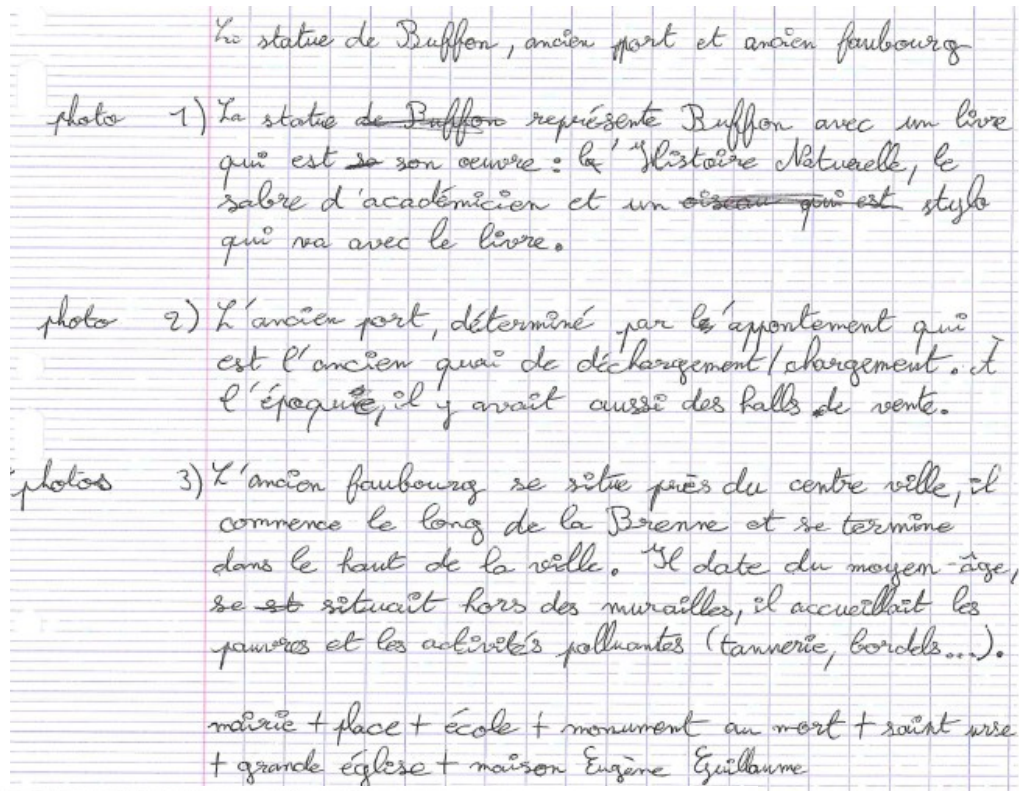 La statue de Buffon, ancien port et ancien faubourg
photo 1) La statue de Buffon représente Buffon avec un livre
qui est se son oeuvre : l'Histoire Naturelle, le
sabre d'académicien et un oiseau qui est stylo
qui va avec le livre.
photo 2) L'ancien port, déterminé par l'appontement qui
est l'ancien quai de déchargement/chargement. À
l'époque, il y avait aussi des halls de vente.
photos 3) L'ancien faubourg se situe près du centre ville, il
commence le long de la Brenne et se termine
dans le haut de la ville. Il date du moyen-âge,
se st situait hors des murailles, il accueillait les
pauvres et les activités polluantes (tannerie, bordels...).
mairie + place + école + monument au mort + saint urse
+ grande église + maison Eugène Guillaume